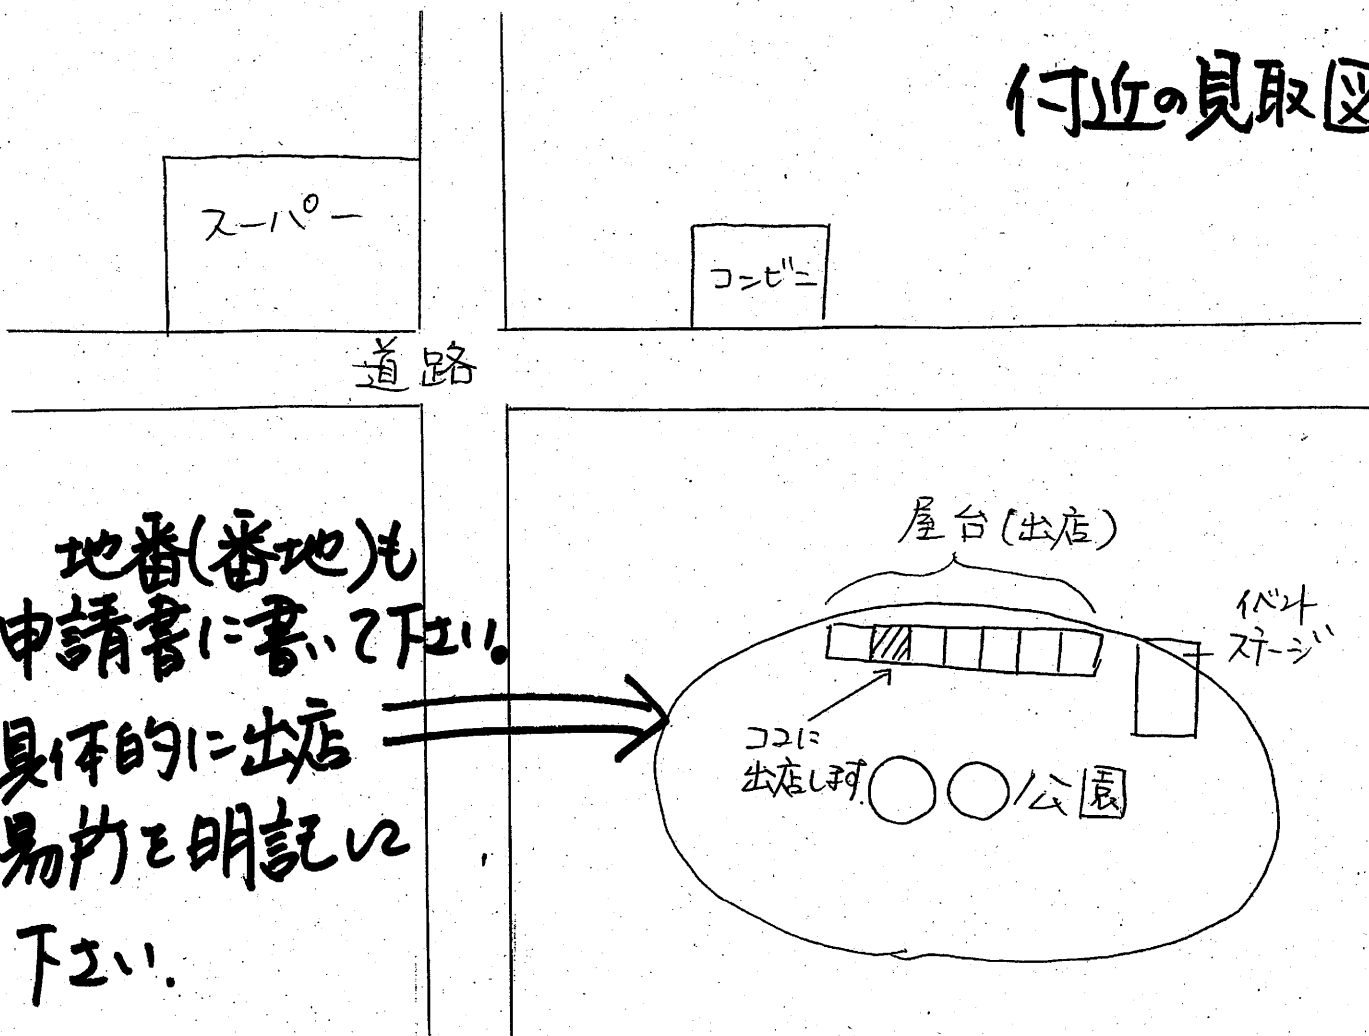 付近の見取図
スーパー
コンビニ
道路
屋台(出店)
イベント
ステージ
ココに
出店します.
〇〇公園
地番(番地)も
申請書に書いて下さい。
具体的に出店
場所を明記して
下さい.